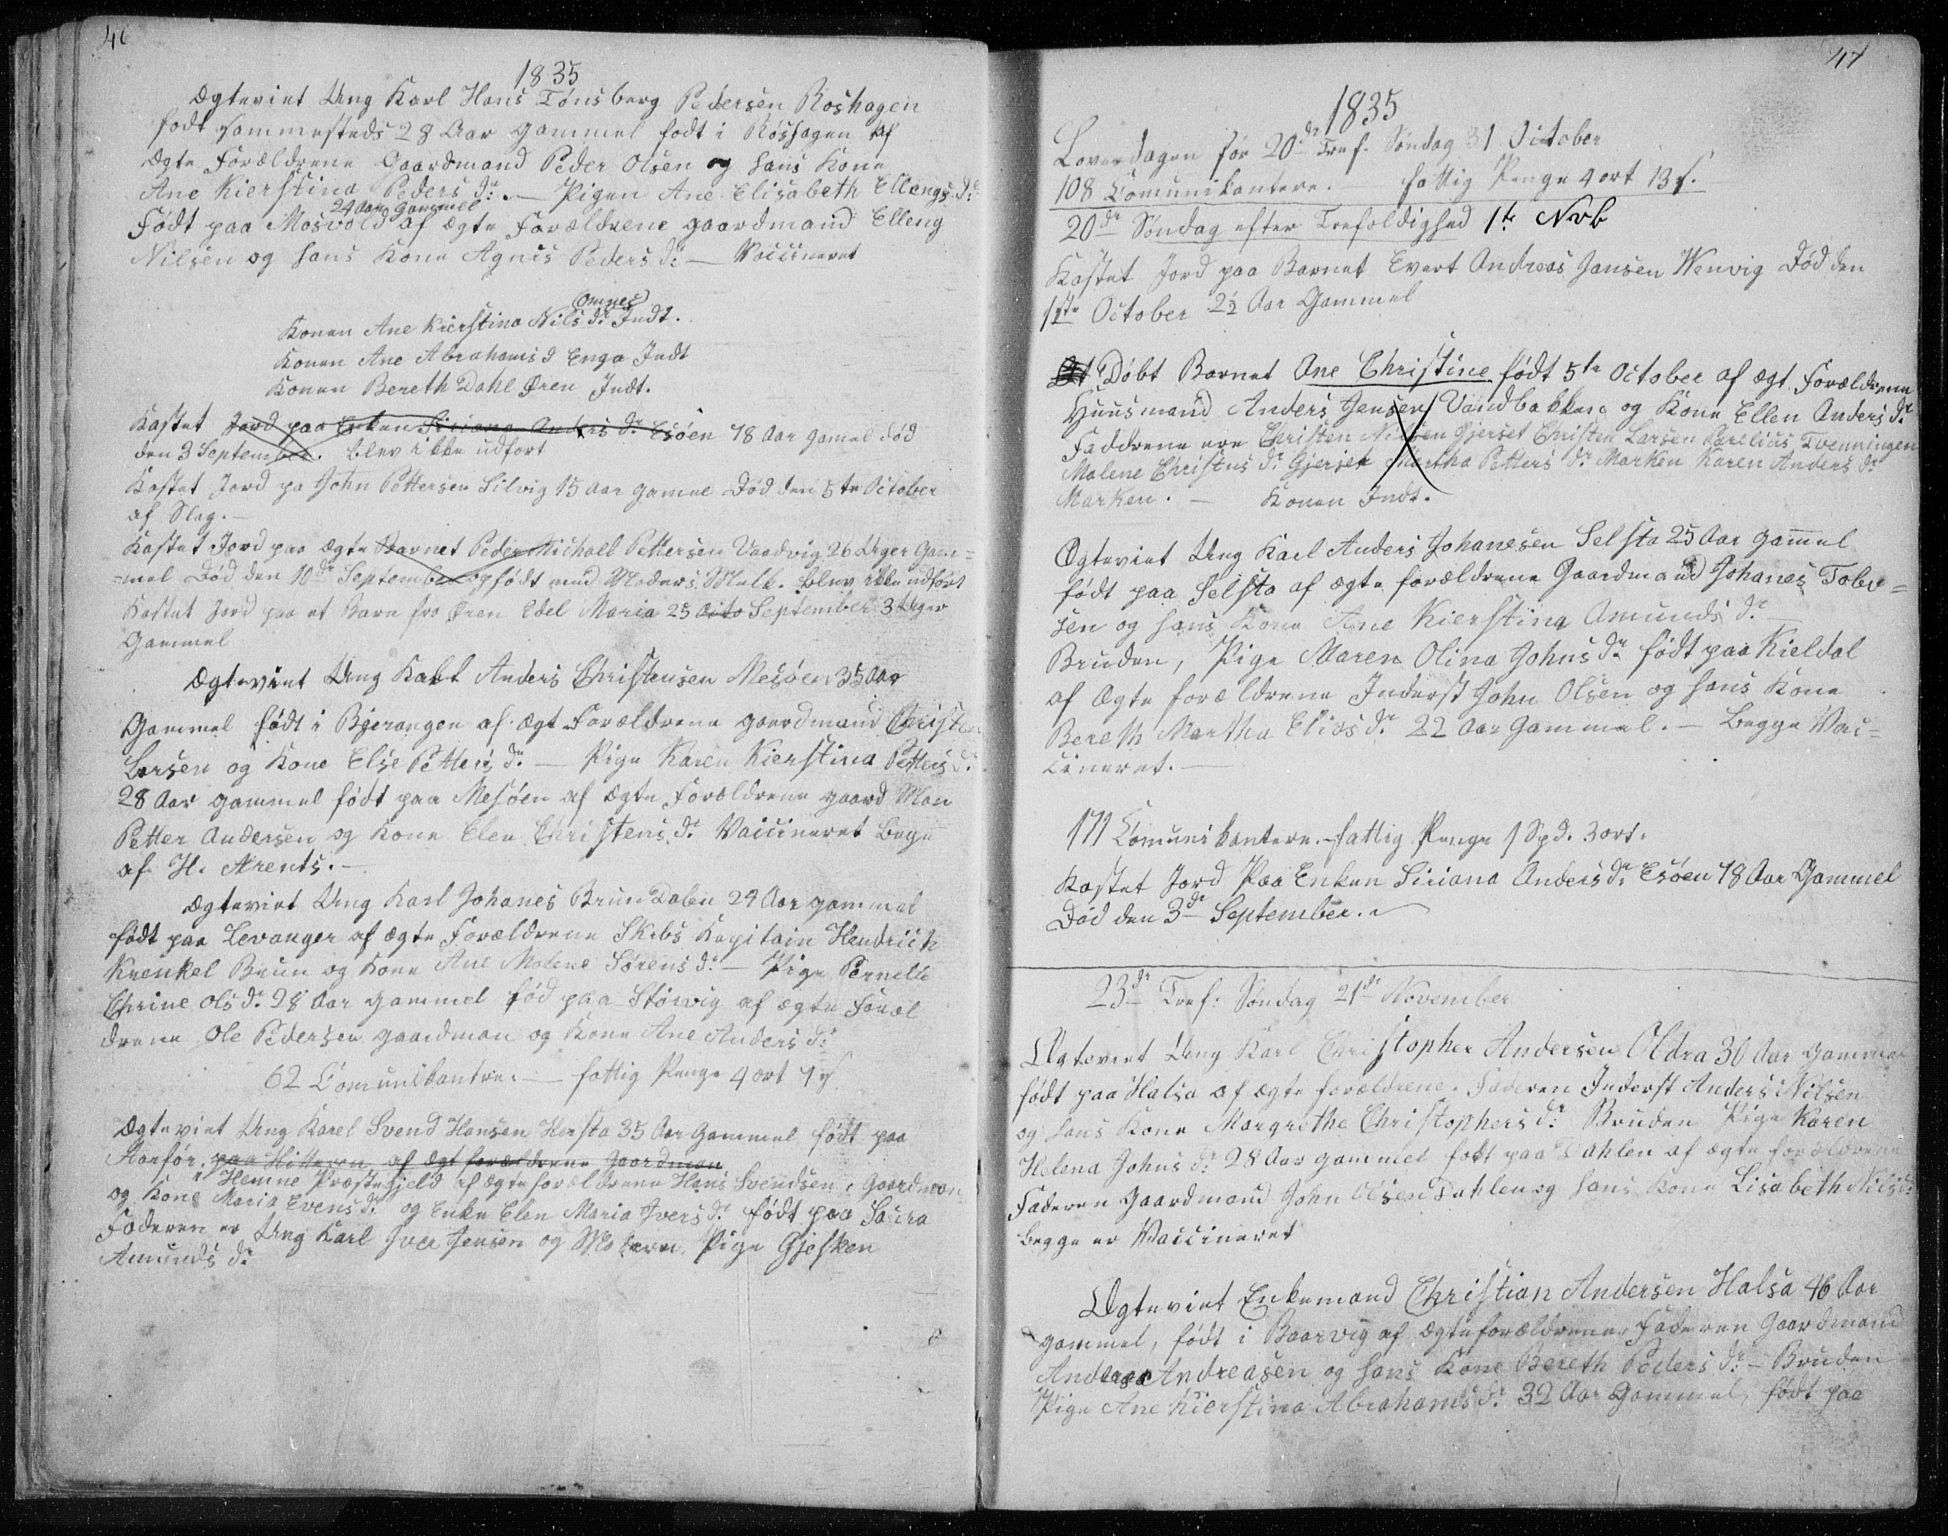 46
1835
Ægteviet Ung Karl Hans Tønsberg Pedersen Roshagen
født sammesteds 28 Aar gammel født i Røshagen af
Ægte Forældrene Gaardmand Peder Olsen og hans Kone
Ane Kierstina Peders dr. — Pigen Ane Elisabeth Ellengs dr
24 Aar gammel
Født paa Mosvold af ægte Forældrene gaardmand Elleng
Nilsen og hans Kone Agnis Peders dr — Vaccineret
Omnes
Konen Ane Kierstina Nils dr Indt.
Konen Ane Abrahams d Enga Indt
Konen Bereth Dahl Øren Indt.
Kastet Jord paa Enken Siriana Anders dr Esøen 78 Aar gamel død
den 3 September. blev ikke udført
Kastet Jord pa John Pettersen Silvig 15 Aar gamel Død den 5te October
af Slag. —
Kastet Jord paa ægte Barnet Peder Michael Pettersen Vaadvig 26 Uger Gam=
=mel Død den 10de September opfødt med Moders Melk. blev ikke udført
Kastet Jord paa et Barn fra Øren Edel Maria 25 Octo September 3 Uger
Gammel
Ægteviet Ung Kall Anders Christensen Mesøen 35 Aar
Gammel født i Bjerangen af Ægt Forældrene gaardmand Christen
Larsen og Kone Else Petters dr — Pige Karen Kierstina Petters d:
28 Aar gammel født paa Mesøen af Ægte Forældrene gaard Man
Petter Andersen og Kone Elen Christens dr Vaccineret Begge
af H. Arents. —
Ægteviet Ung Karl Johanes Brun Dalen 24 Aar gammel
født paa Levanger af ægte Forældrene Skibs Kapitain Hendrich
Krenkel Brun og Kone Ane Malene Sørens dr — Pige Pernelle
Chrine Ols dr 28 Aar gammel fød paa Storvig af ægte Foræl
drene Ole Pedersen gaardman og Kone Ane Anders dr
62 Comunikantere. — fattig Penge 4 ort
Ægteviet Ung Karel Svend Hansen Hersta 35 Aar Gammel født paa
Storfør. paa Hitteren af ægt forældrene Gaardman
i Hemne Præstegjeld af ægte forældrene Hans Svendsen, gaardman
og Kone Maria Evens dr og Enke Elen Maria Ivers dr født paa Saura
Faderen er Ung Karl Iver Jensen og Moderen Pige Gjesken
Amunds dr
47
1835
Løverdagen før 20de Tref. Søndag 31 October
108 Comunikantere. — fattig Penge 4 ort 13 s.
20de Søndag efter Trefoldighed 1te Nvb
Kastet Jord paa Barnet Evert Andreas Jansen Wenvig Død den
1ste October 2½ Aar Gammel
Døbt Barnet Ane Christine født 5te October af ægt. Forældrene
Huusmand Anders Jensen Vandbakken og Kone Ellen Anders dr
Fadderne ere Christen Nielsen Gjerset Christen Larsen Parelius Tvenningen
Malene Christens dr Gjerset Martha Petters dr Marken Karen Anders dr
Marken. — Konen Indt.
Ægteviet Ung Karl Anders Johanesen Selsta 25 Aar gammel
født paa Selsta af ægte forældrene Gaardmand Johanes Tobi=
sen og hans Kone Ane Kierstina Amunds dr —
Bruden, Pige Maren Olina Johns dr født paa Kieldal
af Ægte forældrene Inderst John Olsen og hans Kone
Bereth Martha Elias dr 22 Aar Gammel. — Begge Vac=
cineret. —
171 Comunikantere. — fattig Penge 1 Spd. 3 ort.
Kastet Jord Paa Enken Siriana Anders dr Esøen 78 Aar Gammel
Død den 3de September.
23de Tref. Søndag 21de November
Ægteviet Ung Karl Christopher Andersen Oldra 30 Aar gammel
født paa Halsa af ægte forældrene. Faderen Inderst Anders Nilsen
og hans Kone Margrethe Christophers dr Bruden Pige Karen
Helena Johns dr 28 Aar gammel født paa Dahlen af ægte forældrene
Faderen Gaardmand John Olsen Dahlen og hans Kone Lisabeth Nils dr
begge er Vaccineret
Ægteviet Enkemand Christian Andersen Halsa 46 Aar
gammel, født i Baarvig af Ægte forældrene, Faderen Gaardmand
Anders Andreasen og hans Kone Bereth Peders dr — Bruden
Pige Ane Kierstina Abrahams dr 32 Aar Gammel, født paa